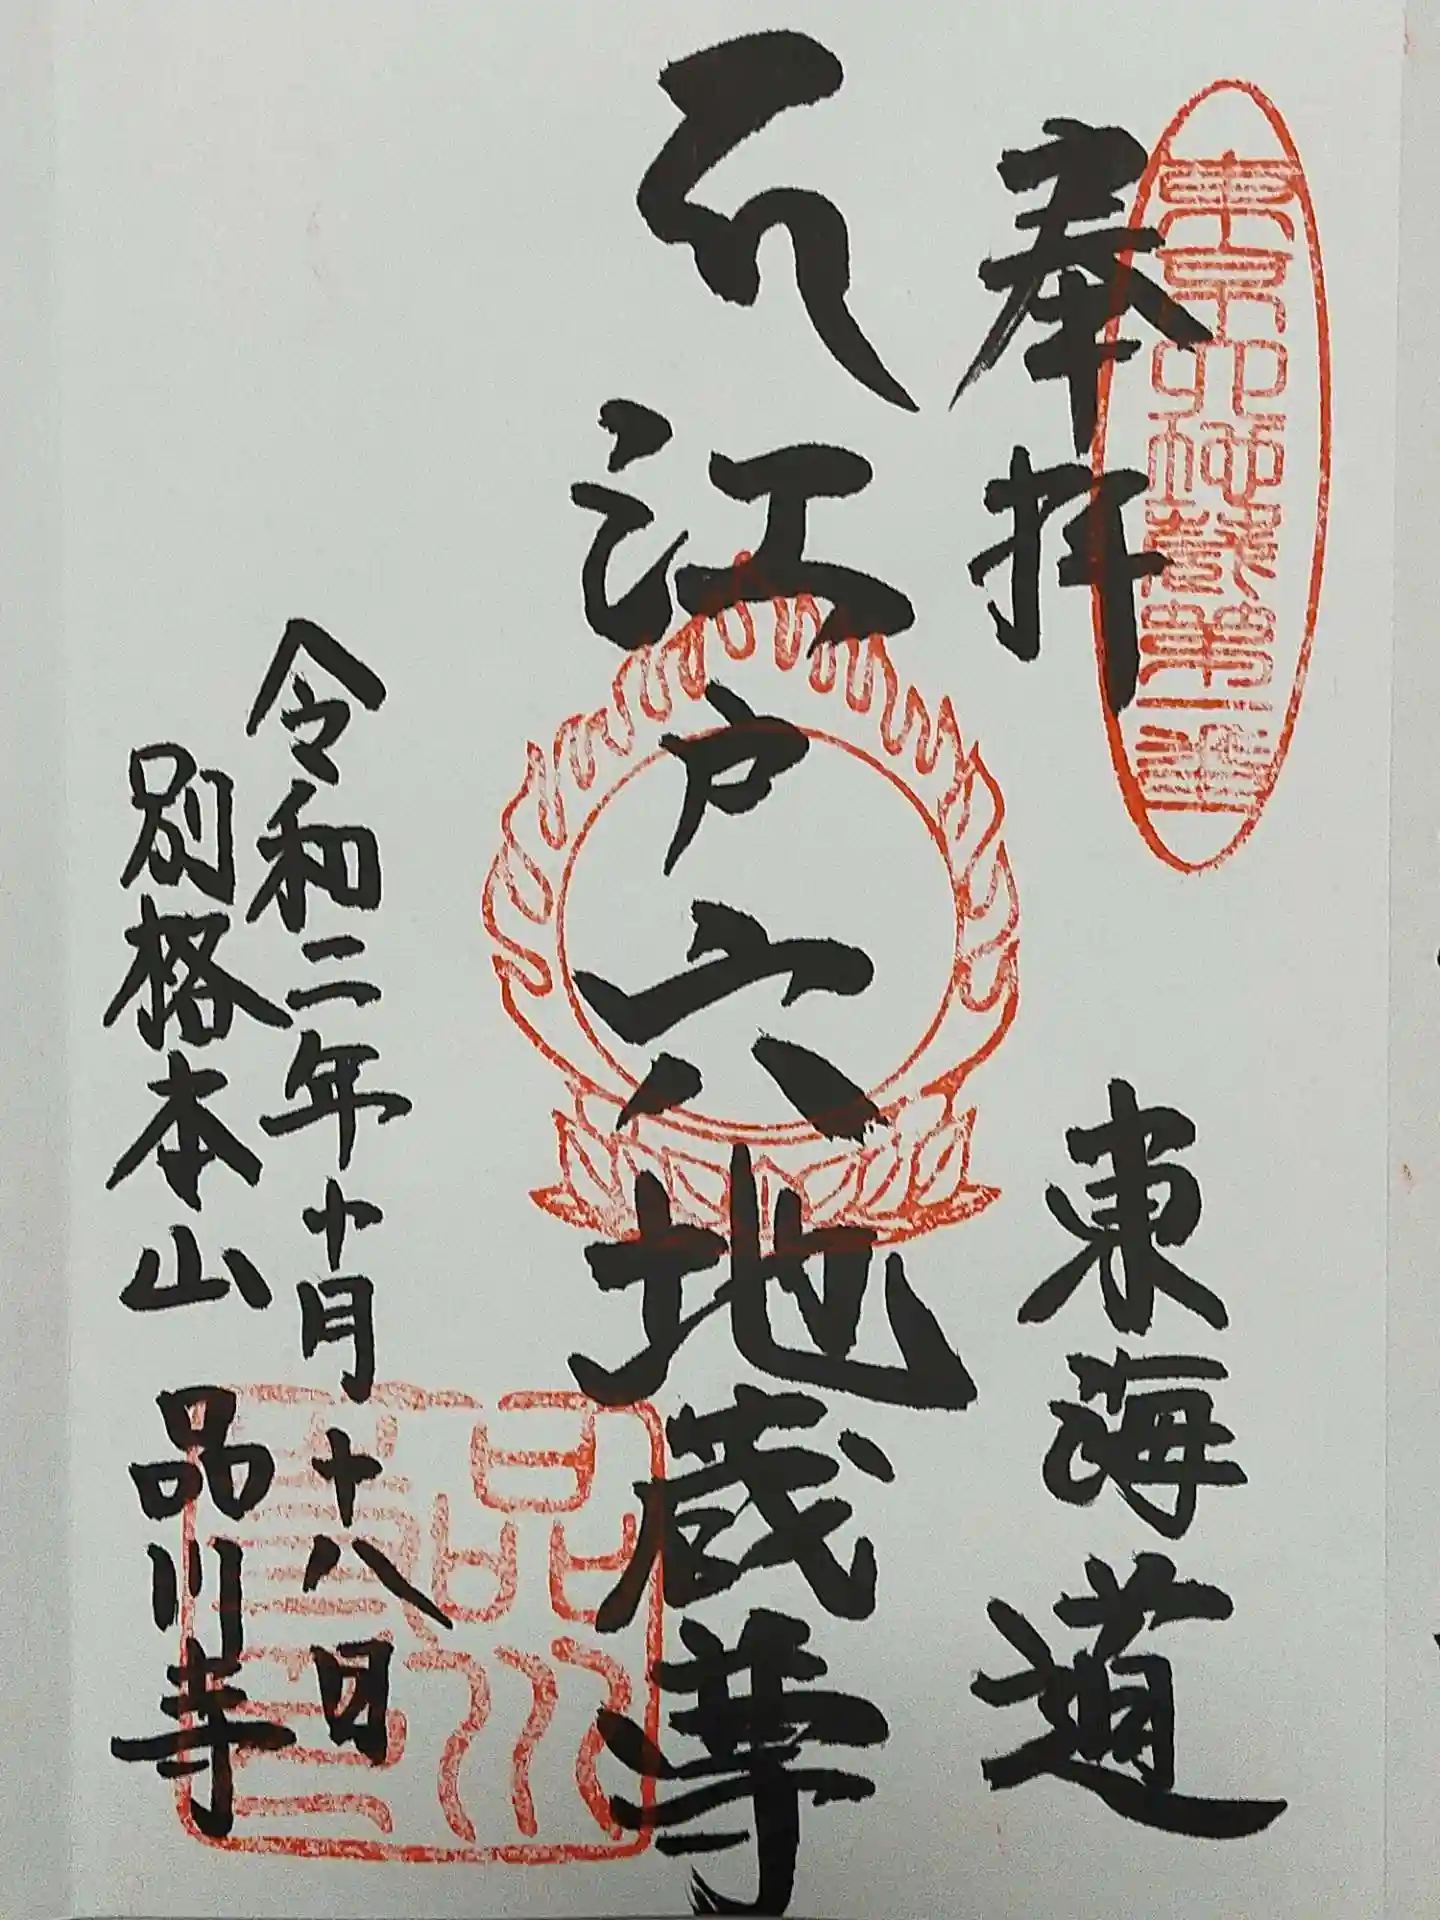 奉拝
東海道
江戸六地蔵尊
令和二年十月十八日
別格本山 品川寺